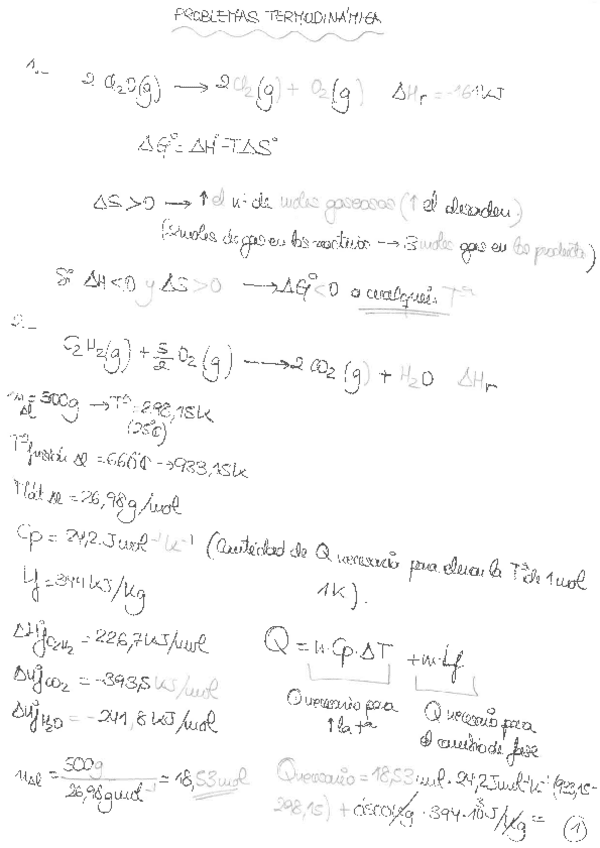 PROBLEMAS TERMODINÁMICA
1.-
2 Cl₂O(g) → 2Cl₂(g) + O₂(g) ΔHr = -161kJ
ΔG° = ΔH° - TΔS°
ΔS > 0 → ↑ el nº de moles gaseosos (↑ el desorden)
moles de gas en los reactivos → 3 moles gas en los productos)
Si ΔH<0 y ΔS>0 → ΔG°<0 a cualquier Tª
2.-
C₂H₂(g) + 5/2 O₂(g) → 2 CO₂(g) + H₂O ΔHr
m Al = 500g → Tª = 298,15K
(25°C)
Tª fusión Al = 660°C → 933,15K
Mat Al = 26,98 g/mol
Cp = 24,2 J mol⁻¹ K⁻¹ (Cantidad de Q necesario para elevar la Tª de 1 mol
1K).
Lf = 394 kJ/Kg
ΔHf° C₂H₂ = 226,7 kJ/mol
Q = n·Cp·ΔT + m·Lf
ΔHf° CO₂ = -393,5 kJ/mol
Q necesario para
↑ la tª
Q necesario para
el cambio de fase
ΔHf° H₂O = -241,8 kJ/mol
n Al = 500g / 26,98 g mol⁻¹ = 18,53 mol
Q necesario = 18,53 mol · 24,2 J mol⁻¹ K⁻¹ (933,15 -
298,15) + 0,500 Kg · 394·10³ J/Kg =
1